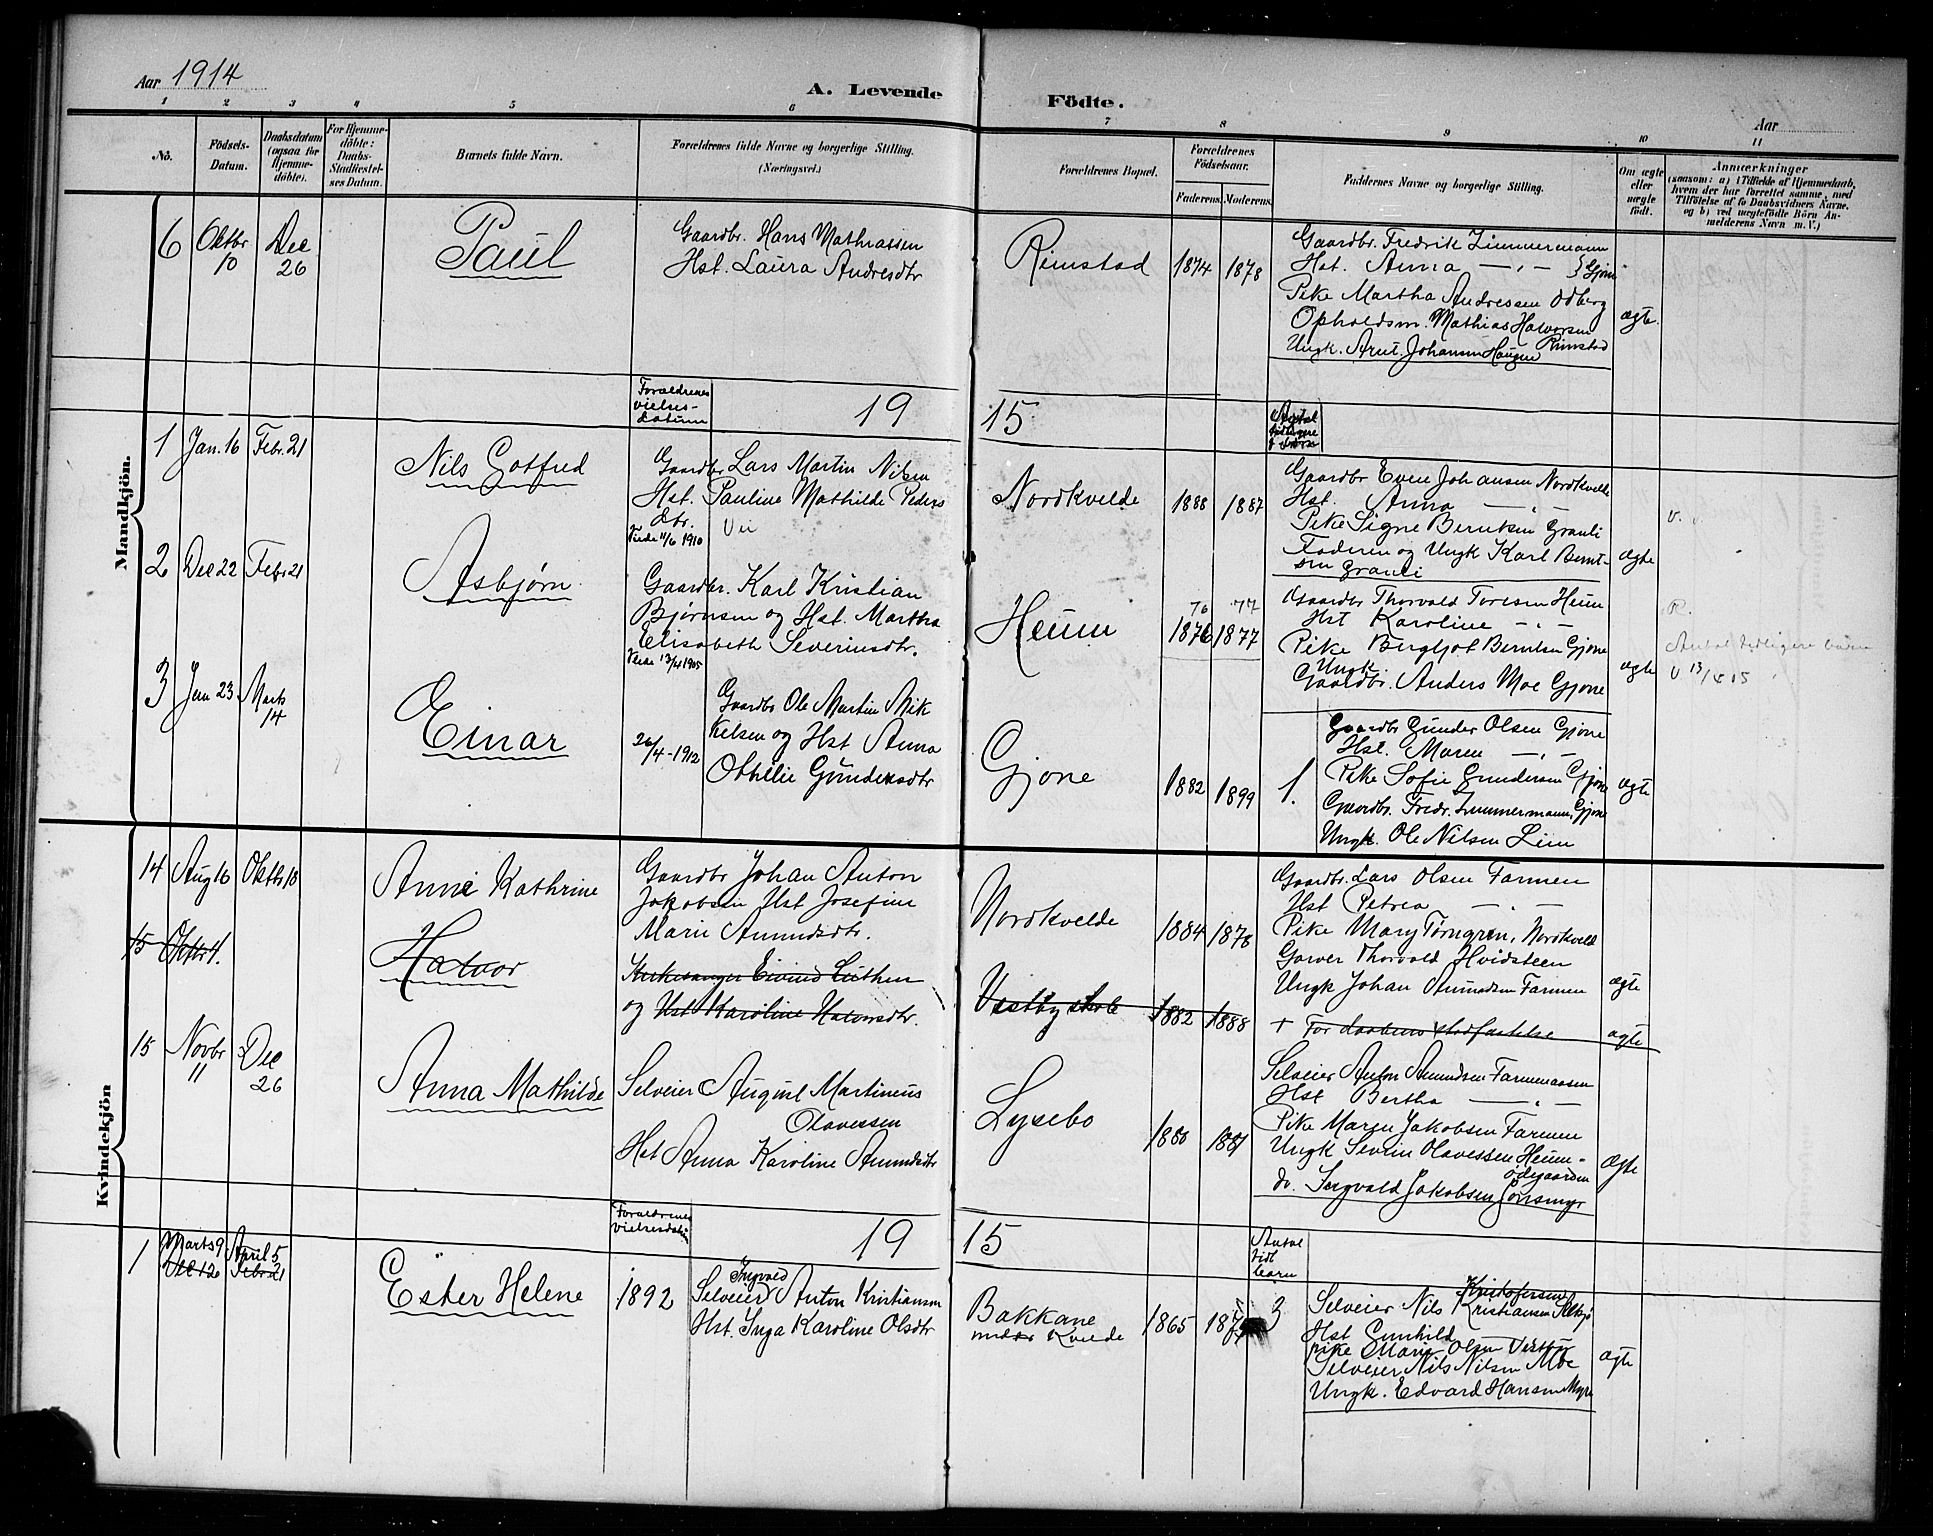 Aar 1914
A. Levende Födte.
Aar
1 2 3 4 5 6 7 8 9 10 11
No.
Födsels-Datum.
Daabsdatum (ogsaa for Hjemme-döbte).
For Hjemme-döbte: Daabs-Stadfæstel-ses Datum.
Barnets fulde Navn.
Forældrenes fulde Navne og borgerlige Stilling.
(Næringsvei.)
Forældrenes Bopæl.
Forældrenes Födselsaar.
Faderens. Moderens.
Faddernes Navne og borgerlige Stilling.
Om ægte eller uægte födt.
Anmærkninger
(saasom: a) i Tilfælde af Hjemmedaab,
hvem der har forrettet samme, med
Tilföielse af to Daabsvidners Navne.
og b) ved uægtefödte Börn An-
melderens Navn m. V.)
Mandkjön.
6 Oktbr 10 Dec 26
Paul
Gaardbr. Hans Mathiassen
Hst. Laura Andresdtr
Rimstad 1874 1878
Gaardbr. Fredrik Zimmermann
Hst. Anna — „ — } Gjøne
Pike Martha Andressen Odberg
Opholdsm. Mathias Halvorsen
Rimstad
Ungk. Arnt. Johansen Haugen
ægte.
Forældrenes
vielses-
datum
19 15
Antal
tidligere
børn
1 Jan. 16 Febr. 21
Nils Gotfred
Gaardbr Lars Martin Nilsen
Hst. Pauline Mathilde Peders
dtr.
Viede 11/6 1910
Nordkvelde 1888 1887
Gaardbr Even Johansen Nordkvelde
Hst. Anna — „ —
Pike Signe Berntsen Granli
Faderen og Ungk Karl Bernt-
sen Granli
ægte
2 Dec 22 Febr 21
Asbjørn
Gaardbr. Karl Kristian
Bjørnsen og Hst. Martha
Elisabeth Severinsdtr.
Viede 13/4 1905
Heum
76 77
1876 1877
Gaardbr Thorvald Toresen Heum
Hst Karoline — „ —
Pike Bergljot Berntsen Gjøne
Ungk.
Gaardbr. Anders Moe Gjøne
ægte
R.
Antal tidligere børn
3 Jan 23 Marts 14
Einar
26/4 - 1912
Gaardbr Ole Martin Mik
kelsen og Hst Anna
Othilie Gundersdtr
Gjone 1882 1899 1.
Gaardbr Gunder Olsen Gjone
Hst. Maren — „ —
Pike Sofie Gundersen Gjone
Gaardbr. Fredr. Zimmermann, Gjone
Ungk. Ole Nilsen Lien
ægte
Kvindekjön
14 Aug 16 Oktbr 18
Anne Kathrine
Gaardbr Johan Anton
Jakobsen Hst Josefine
Marie Amundsdtr.
Nordkvelde 1884 1878
Gaardbr. Lars Olsen Farmen
Hst Petrea — „ —
Pike Mary Tørngren, Nordkveld
Garver Thorvald Hvidsteen
Ungk Johan Amundsen Farmen
ægte
15 Oktbr 1.
Halvor
Kirkesanger Eivind Luthen
og Hst Karoline Halvorsdtr.
Vestby skole 1882 1888
+ Før daabens stadfæstelse
ægte
15 Novbr 11 Dec 26
Anna Mathilde
Selveier August Martinius
Olavessen
Hst Anna Karoline Amundsdtr
Lysebo 1880 1881
Selveier Anton Amundsen Farmenaasen
Hst Bertha — „ —
Pike Maren Jakobsen Farmen
Ungk Sevrin Olavessen Heum-
ødegaarden
do. Ingvald Jakobsen Sørsmyr
Ægte
Forældrenes
vielsesdatum
19 15
Antal
tidl
børn
1 Marts 9 April 5
Dec 126 Febr 21
Ester Helene
1892
Ingvald
Selveier Anton Kristiansen
Hst. Inga Karoline Olsdtr
Bakkane
under Kvelde
1865 3
Kristofersen
Selveier Nils Kristiansen
Hst Gunhild
pike Marie Olsen
Selveier Nils Nilsen Moe
Ungk. Edvard Hansen Myre
ægte